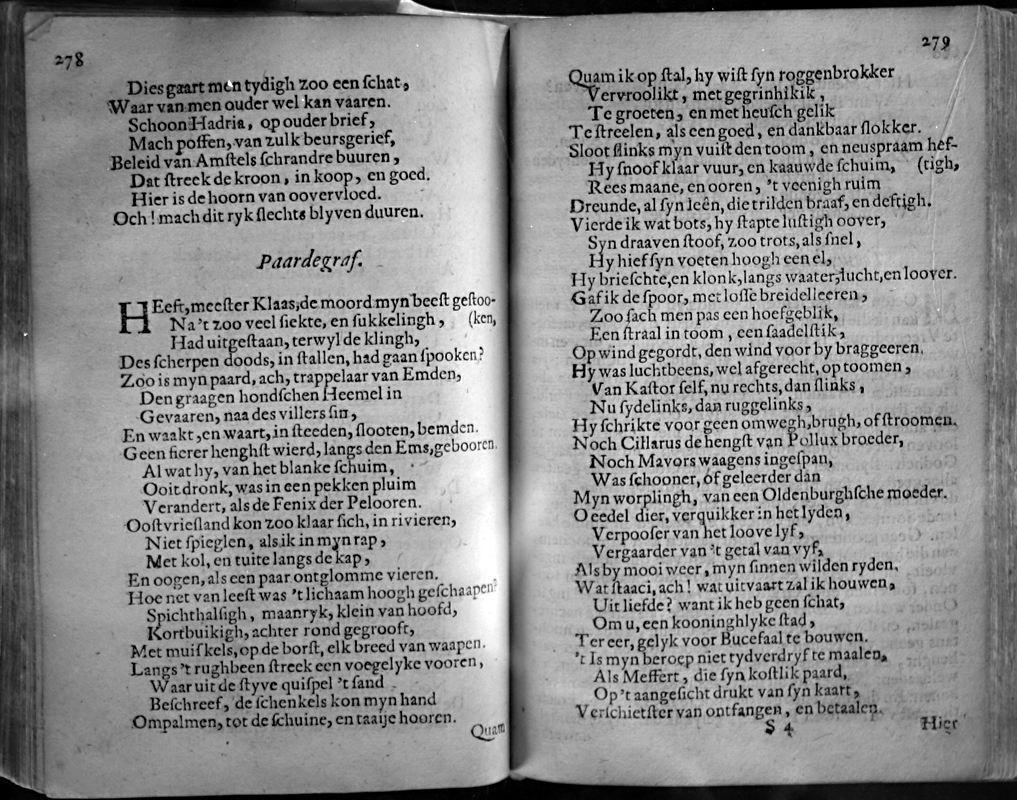 278
Dies gaart men tydigh zoo een ſchat,
Waar van men ouder wel kan vaaren.
Schoon Hadria, op ouder brief,
Mach poffen, van zulk beursgerief,
Beleid van Amſtels ſchrandre buuren,
Dat ſtreek de kroon, in koop, en goed.
Hier is de hoorn van oovervloed.
Och! mach dit ryk ſlechts blyven duuren.
Paardegraf.
HEeft, meeſter Klaas, de moord myn beeſt geſtoo-
Na 't zoo veel ſiekte, en ſukkelingh, (ken,
Had uitgeſtaan, terwyl de klingh,
Des ſcherpen doods, in ſtallen, had gaan ſpooken?
Zoo is myn paard, ach, trappelaar van Emden,
Den graagen hondſchen Heemel in
Gevaaren, naa des villers ſin,
En waakt, en waart, in ſteeden, ſlooten, bemden.
Geen fierer henghſt wierd, langs den Ems, gebooren.
Al wat hy, van het blanke ſchuim,
Ooit dronk, was in een pekken pluim
Verandert, als de Fenix der Pelooren.
Ooſtvrieſland kon zoo klaar ſich, in rivieren,
Niet ſpieglen, als ik in myn rap,
Met kol, en tuite langs de kap,
En oogen, als een paar ontglomme vieren.
Hoe net van leeſt was 't lichaam hoogh geſchaapen?
Spichthalſigh, maanryk, klein van hoofd,
Kortbuikigh, achter rond gegrooft,
Met muiſkels, op de borſt, elk breed van waapen.
Langs 't rughbeen ſtreek een voegelyke vooren,
Waar uit de ſtyve quiſpel 't ſand
Beſchreef, de ſchenkels kon myn hand
Ompalmen, tot de ſchuine, en taaije hooren.
Quam
279
Quam ik op ſtal, hy wiſt ſyn roggenbrokker
Vervroolikt, met gegrinhikik,
Te groeten, en met heuſch gelik
Te ſtreelen, als een goed, en dankbaar ſlokker.
Sloot ſlinks myn vuiſt den toom, en neuspraam hef-
Hy ſnoof klaar vuur, en kaauwde ſchuim, (tigh,
Rees maane, en ooren, 't veenigh ruim
Dreunde, al ſyn leên, die trilden braaf, en deftigh.
Vierde ik wat bots, hy ſtapte luſtigh oover,
Syn draaven ſtoof, zoo trots, als ſnel,
Hy hief ſyn voeten hoogh een el,
Hy brieſchte, en klonk, langs waater, lucht, en loover.
Gaf ik de ſpoor, met loſſe breidelleeren,
Zoo ſach men pas een hoefgeblik,
Een ſtraal in toom, een ſaadelſtik,
Op wind gegordt, den wind voor by braggeeren.
Hy was luchtbeens, wel afgerecht, op toomen,
Van Kaſtor ſelf, nu rechts, dan ſlinks,
Nu ſydelinks, dan ruggelinks,
Hy ſchrikte voor geen omwegh, brugh, of ſtroomen.
Noch Cillarus de hengſt van Pollux broeder,
Noch Mavors waagens ingeſpan,
Was ſchooner, of geleerder dan
Myn worplingh, van een Oldenburghſche moeder.
O eedel dier, verquikker in het lyden,
Verpooſer van het loove lyf,
Vergaarder van 't getal van vyf,
Als by mooi weer, myn ſinnen wilden ryden.
Wat ſtaaci, ach! wat uitvaart zal ik houwen,
Uit liefde? want ik heb geen ſchat,
Om u, een kooninghlyke ſtad,
Ter eer, gelyk voor Bucefaal te bouwen.
't Is myn beroep niet tydverdryf te maalen,
Als Meſſert, die ſyn koſtlik paard,
Op 't aangeſicht drukt van ſyn kaart,
Verſchietſter van ontfangen, en betaalen.
S 4 Hier